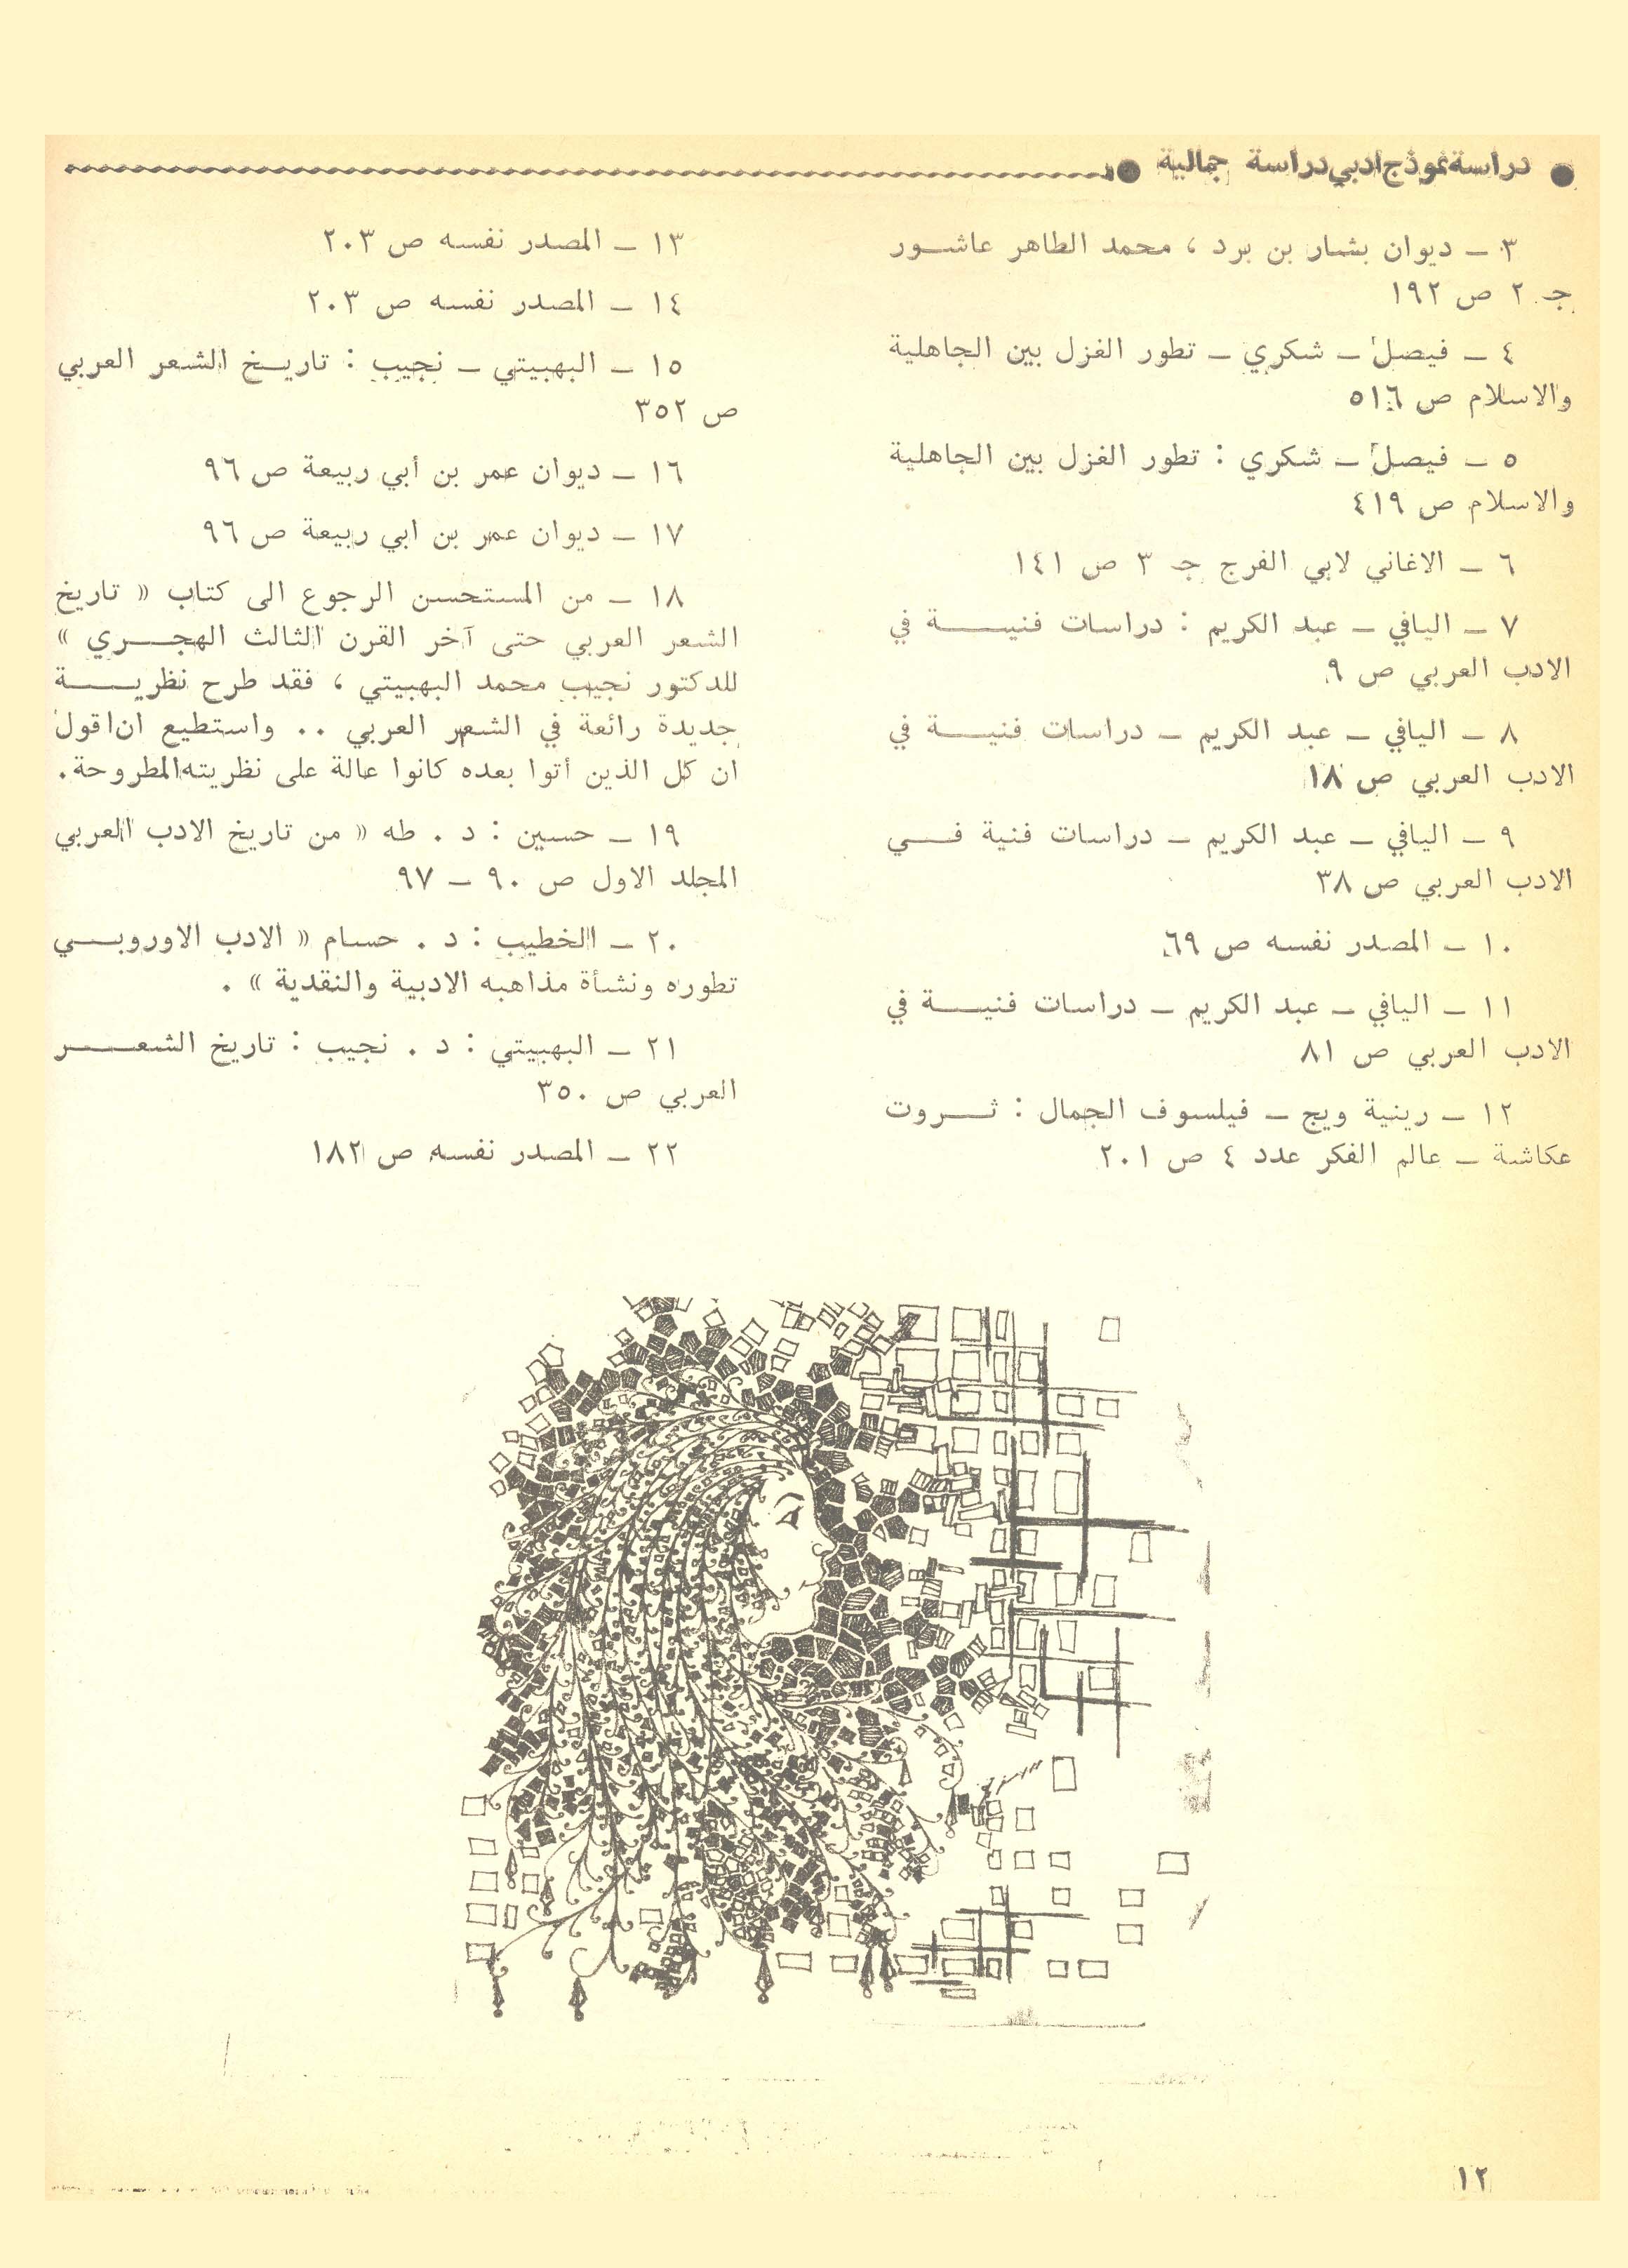 ● دراسة نموذج ادبي دراسة جمالية ●
٣ ــ ديوان بشار بن برد ، محمد الطاهر عاشــور
جـ ٢ ص ١٩٢
٤ ــ فيصل ــ شكري ــ تطور الغزل بين الجاهلية
والاسلام ص ٥١٦
٥ ــ فيصل ــ شكري : تطور الغزل بين الجاهلية
والاسلام ص ٤١٩
٦ ــ الاغاني لابي الفرج جـ ٣ ص ١٤١
٧ ــ اليافي ــ عبد الكريم : دراسات فنيــــة في
الادب العربي ص ٩
٨ ــ اليافي ــ عبد الكريم ــ دراسات فنيــــة في
الادب العربي ص ١٨
٩ ــ اليافي ــ عبد الكريم ــ دراسات فنية فــي
الادب العربي ص ٣٨
١٠ ــ المصدر نفسه ص ٦٩
١١ ــ اليافي ــ عبد الكريم ــ دراسات فنيــــة في
الادب العربي ص ٨١
١٢ ــ رينية ويج ــ فيلسوف الجمال : ثــروت
عكاشة ــ عالم الفكر عدد ٤ ص ٢٠١
١٣ ــ المصدر نفسه ص ٢٠٣
١٤ ــ المصدر نفسه ص ٢٠٣
١٥ ــ البهبيتي ــ نجيب : تاريــخ الشعر العربي
ص ٣٥٢
١٦ ــ ديوان عمر بن أبي ربيعة ص ٩٦
١٧ ــ ديوان عمر بن ابي ربيعة ص ٩٦
١٨ ــ من المستحسن الرجوع الى كتاب « تاريخ
الشعر العربي حتى آخر القرن الثالث الهجــري »
للدكتور نجيب محمد البهبيتي ، فقد طرح نظريــــة
جديدة رائعة في الشعر العربي .. واستطيع ان اقول
ان كل الذين أتوا بعده كانوا عالة على نظريته المطروحة .
١٩ ــ حسين : د . طه « من تاريخ الادب العربي
المجلد الاول ص ٩٠ ــ ٩٧
٢٠ ــ الخطيب : د . حسام « الادب الاوروبــي
تطوره ونشأة مذاهبه الادبية والنقدية » .
٢١ ــ البهبيتي : د . نجيب : تاريخ الشعــــر
العربي ص ٣٥٠
٢٢ ــ المصدر نفسه ص ١٨٢
١٢